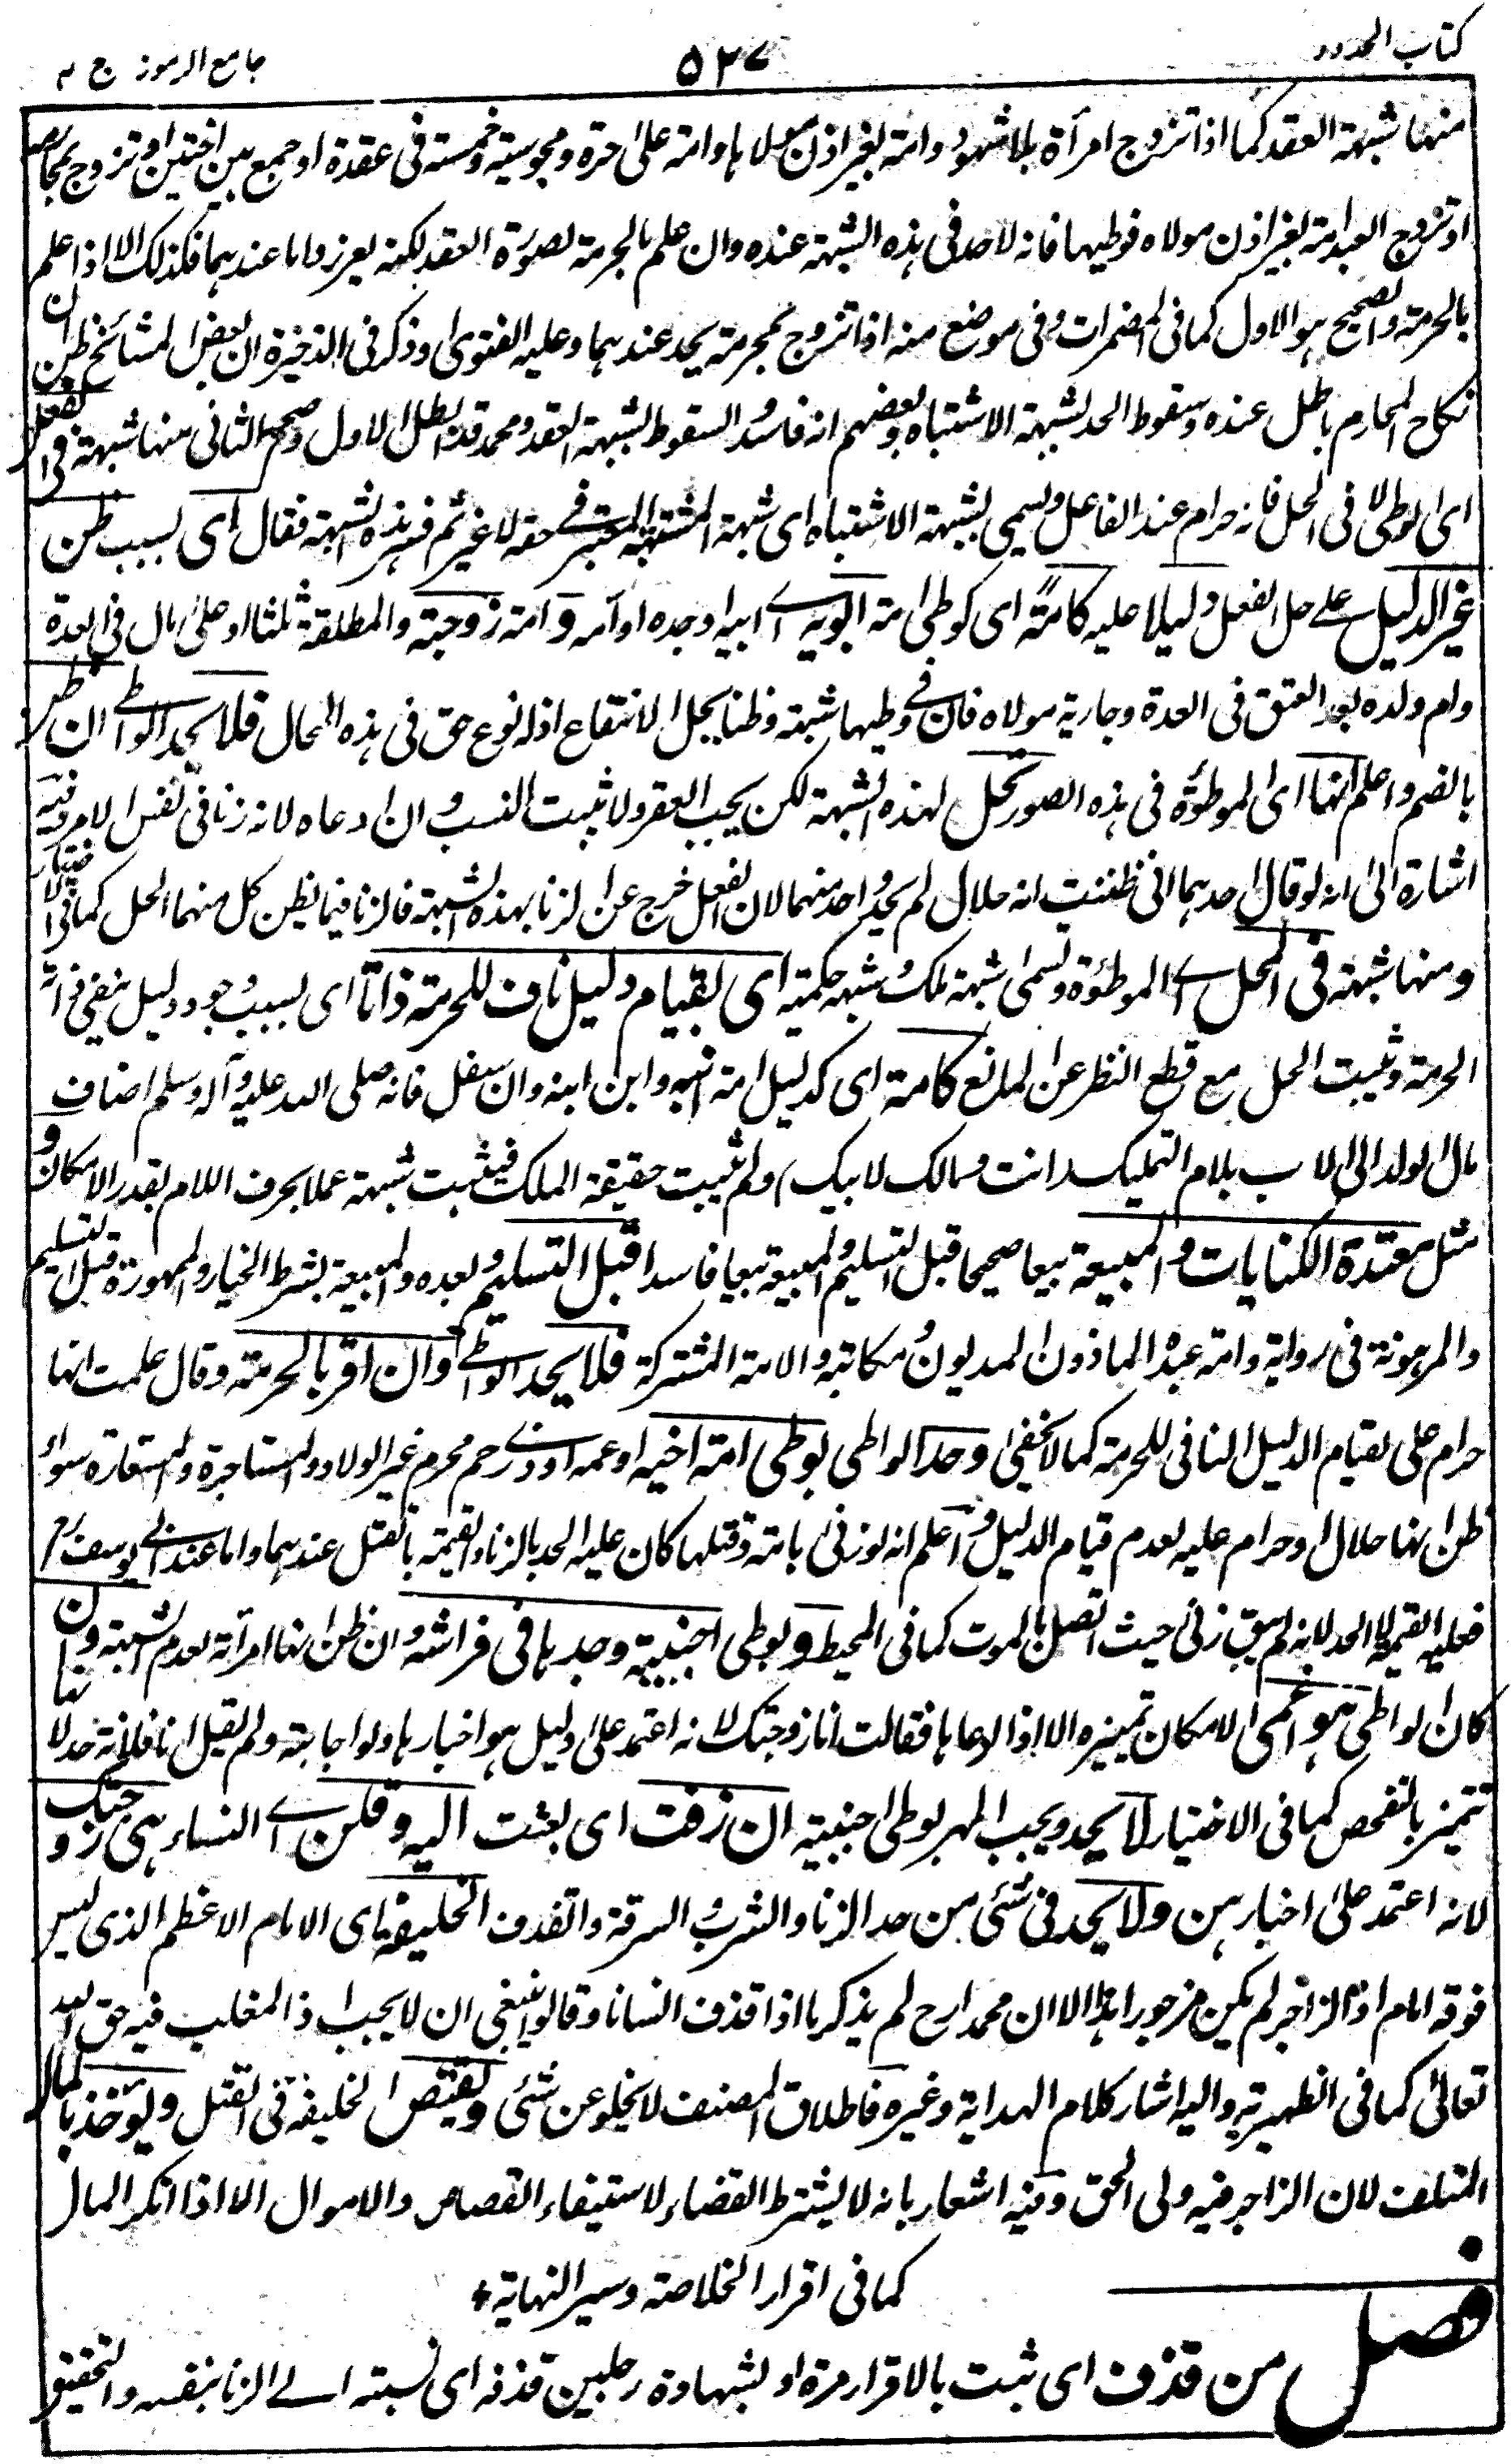 كتاب الحدود
۵۲۷
جامع الرموز ج ۲
منها شبهة العقد كما اذا تزوج امرأة بلا شهود وامة بغير اذن مولاها وامة على حرة ومجوسية وخمسة فى عقدة او جمع بين اختين او تزوج بمحارمه
او تزوج العبد امة بغير اذن مولاه فوطيها فانه لا حد فى هذه الشبهة عنده وان علم بالحرمة لصورة العقد لكنه يعزر واما عندهما فكذلك الا اذا علم
بالحرمة والصحيح هو الاول كما فى المضمرات وفى موضع منه اذا تزوج بمحرمه يحد عندهما وعليه الفتوى وذكر فى الذخيرة ان بعض المشائخ ظن ان
نكاح المحارم باطل عنده وسقوط الحد لشبهة الاشتباه وبعضهم انه فاسد والسقوط لشبهة العقد ومحمد قد ابطل الاول وصحح الثانى منها شبهة فى الفعل
اى الوطى لا فى المحل فانه حرام عند الفاعل ويسمى بشبهة الاشتباه اى شبهة المشتبه المعتبر فى حقه لا غير ثم فسر هذه الشبهة فقال اى بسبب ظن
غير الدليل على حل الفعل دليلا عليه كامة اى كوطى امة ابويه اے ابيه او جده او امه و امة زوجته والمطلقة ثلثا او على مال فى العدة
وام ولده بعد العتق فى العدة وجارية مولاه فان فى وطيها شبهة وظنا بحل الانتفاع اذ له نوع حق فى هذه المحال فلا يحد الواطى ان ظن
بالضم واعلم انها اى الموطؤة فى هذه الصور تحل لهذه الشبهة لكن يجب العقر ولا يثبت النسب وان ادعاه لانه زنا فى نفس الامر وفيه
اشارة الى انه لو قال احدهما انى ظننت انه حلال لم يحد واحد منهما لان الفعل خرج عن الزنا بهذه الشبهة فالزنا فيما يظن كل منهما الحل كما فى الاختيار
ومنها شبهة فى المحل اے الموطؤة وتسمى شبهة ملك وشبهة حكمية اى لقيام دليل ناف للحرمة ذاتا اى بسبب وجود دليل ينفى فى ذاته
الحرمة ويثبت الحل مع قطع النظر عن المانع كامة اى كدليل امة ابنه وابن ابنه وان سفل فانه صلى الله عليه وآله وسلم اضاف
مال الولد الى الاب بلام التمليك (انت ومالك لابيك) ولم يثبت حقيقة الملك فيثبت شبهة عملا بحرف اللام بقدر الامكان و
مثل معتدة الكنايات والمبيعة بيعا صحيحا قبل التسليم والمبيعة بيعا فاسدا قبل التسليم وبعده والمبيعة بشرط الخيار والممهورة قبل التسليم
والمرهونة فى رواية وامة عبده الماذون المديون ومكاتبه والامة المشتركة فلا يحد الواطى وان اقر بالحرمة وقال علمت انها
حرام على لقيام الدليل النافى للحرمة كما لا يخفى وحد الواطى بوطى امة اخيه او عمه او ذى رحم محرم غير الولاد والمستاجرة والمستعارة سواء
ظن انها حلال او حرام عليه لعدم قيام الدليل واعلم انه لو زنى بامة وقتلها كان عليه الحد بالزنا والقيمة بالقتل عندهما واما عند ابى يوسف رح
فعليه القيمة لا الحد لانه لم يبق زنى حيث اتصل بالموت كما فى المحيط و بوطى اجنبية وجدها فى فراشه وان ظن انها امرأته لعدم الشبهة وان
كان الواطى هو اعمى لامكان تميزه الا اذا دعاها فقالت انا زوجتك لانه اعتمد على دليل هو اخبارها ولو اجابته ولم تقل انا فلانة حد لانها
تتميز بالتفحص كما فى الاختيار لا يحد ويجب المهر بوطى اجنبية ان زفت اى بعثت اليه وقلن اے النساء هى زوجتك
لانه اعتمد على اخبارهن ولا يحد فى شئى من حد الزنا والشرب والسرقة والقذف الخليفة اى الامام الاعظم الذى ليس
فوقه امام اذ الزاجر لم يكن مزجورا بهذا الا ان محمدا رح لم يذكر ما اذا قذف انسانا وقالوا ينبغى ان لا يجب اذ المغلب فيه حق الله
تعالى كما فى الظهيرية واليه اشار كلام الهداية وغيره فاطلاق المصنف لا يخلو عن شئى ويقتص الخليفة فى القتل ويؤخذ بالمال
المتلف لان الزاجر فيه ولى الحق وفيه اشعار بانه لا يشترط القضاء لاستيفاء القصاص والاموال الا اذا انكر المال
كما فى اقرار الخلاصة وسير النهاية
فصل
من قذف اى ثبت بالاقرار مرة او بشهادة رجلين قذفه اى نسبته الے الزنا بنفسه والتحقيق